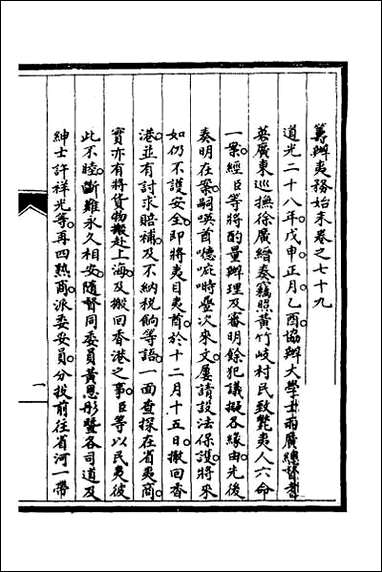 籌辦夷務始末卷之七十九
道光二十八年戊申正月乙酉協辦大學士兩廣總督耆
英廣東巡撫徐廣縉奏竊照黃竹岐村民致斃夷人六命
一案經臣等將酌量辦理及審明餘犯議擬各緣由先後
奏明在案嗣㗆酋嘧㕸噅疊次來文屢請設法保護將來
如仍不護安全即將夷目夷酋於十二月十五日撤回香
港並有討求賠補及不納稅餉等語一面查探在省夷商
實亦有將貨物搬赴上海及搬回香港之事臣等以民夷彼
此不睦斷難永久相安隨督同委員黃恩彤暨各司道及
紳士許祥光等再四熟商派委妥員分投前往省河一帶
一